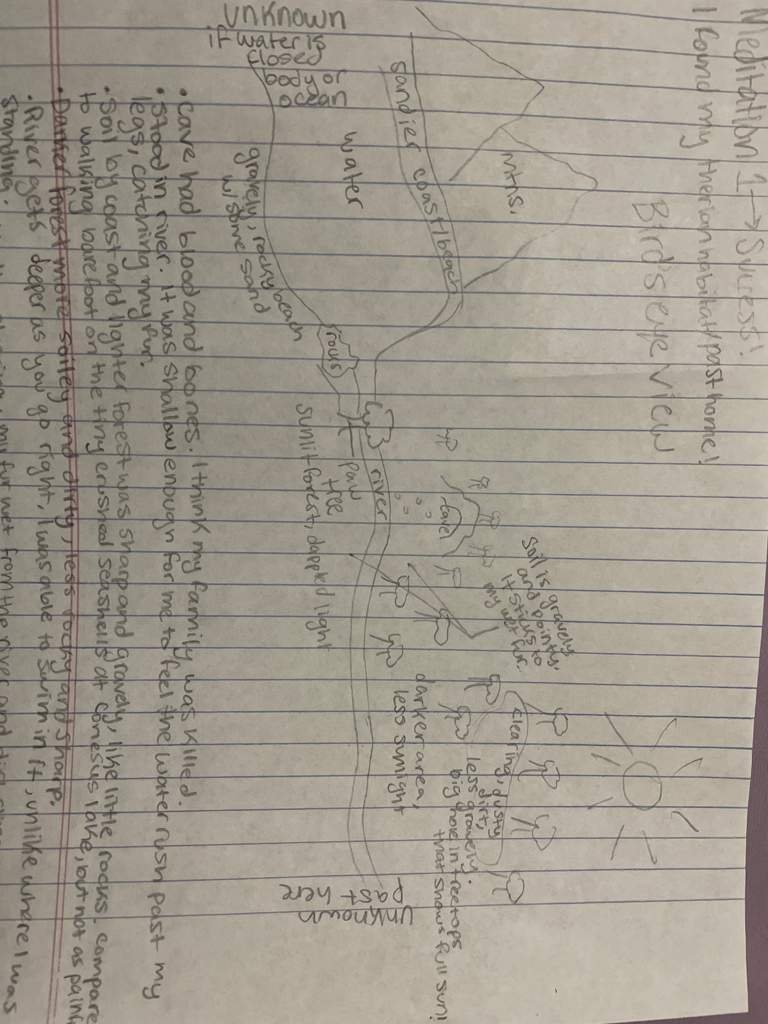 Meditation 1 → Success!
I found my therian habitat/past home!
Bird's eye view
mtns.
sandier coast/beach
water
UNKNOWN
if water is
closed
body or
ocean
gravely, rocky beach
w/ some sand
rocks
river
paw
tree
sunlit forest, dappled light
cave
soil is gravely
and pointy,
it sticks to
my wet fur.
darker area,
less sunlight
clearing, dusty
dirt,
less gravely.
big hole in treetops
that shows full sun!
unknown
past here
• Cave had blood and bones. I think my family was killed.
• Stood in river. It was shallow enough for me to feel the water rush past my
legs, catching my fur.
• Soil by coast and lighter forest was sharp and gravely, like little rocks. compare
to walking barefoot on the tiny crushed seashells at conesus lake, but not as painful
• Darker forest more soiley and dirty, less rocky and sharp.
• River gets deeper as you go right, I was able to swim in it, unlike where I was
standing.
my fur wet from the river and